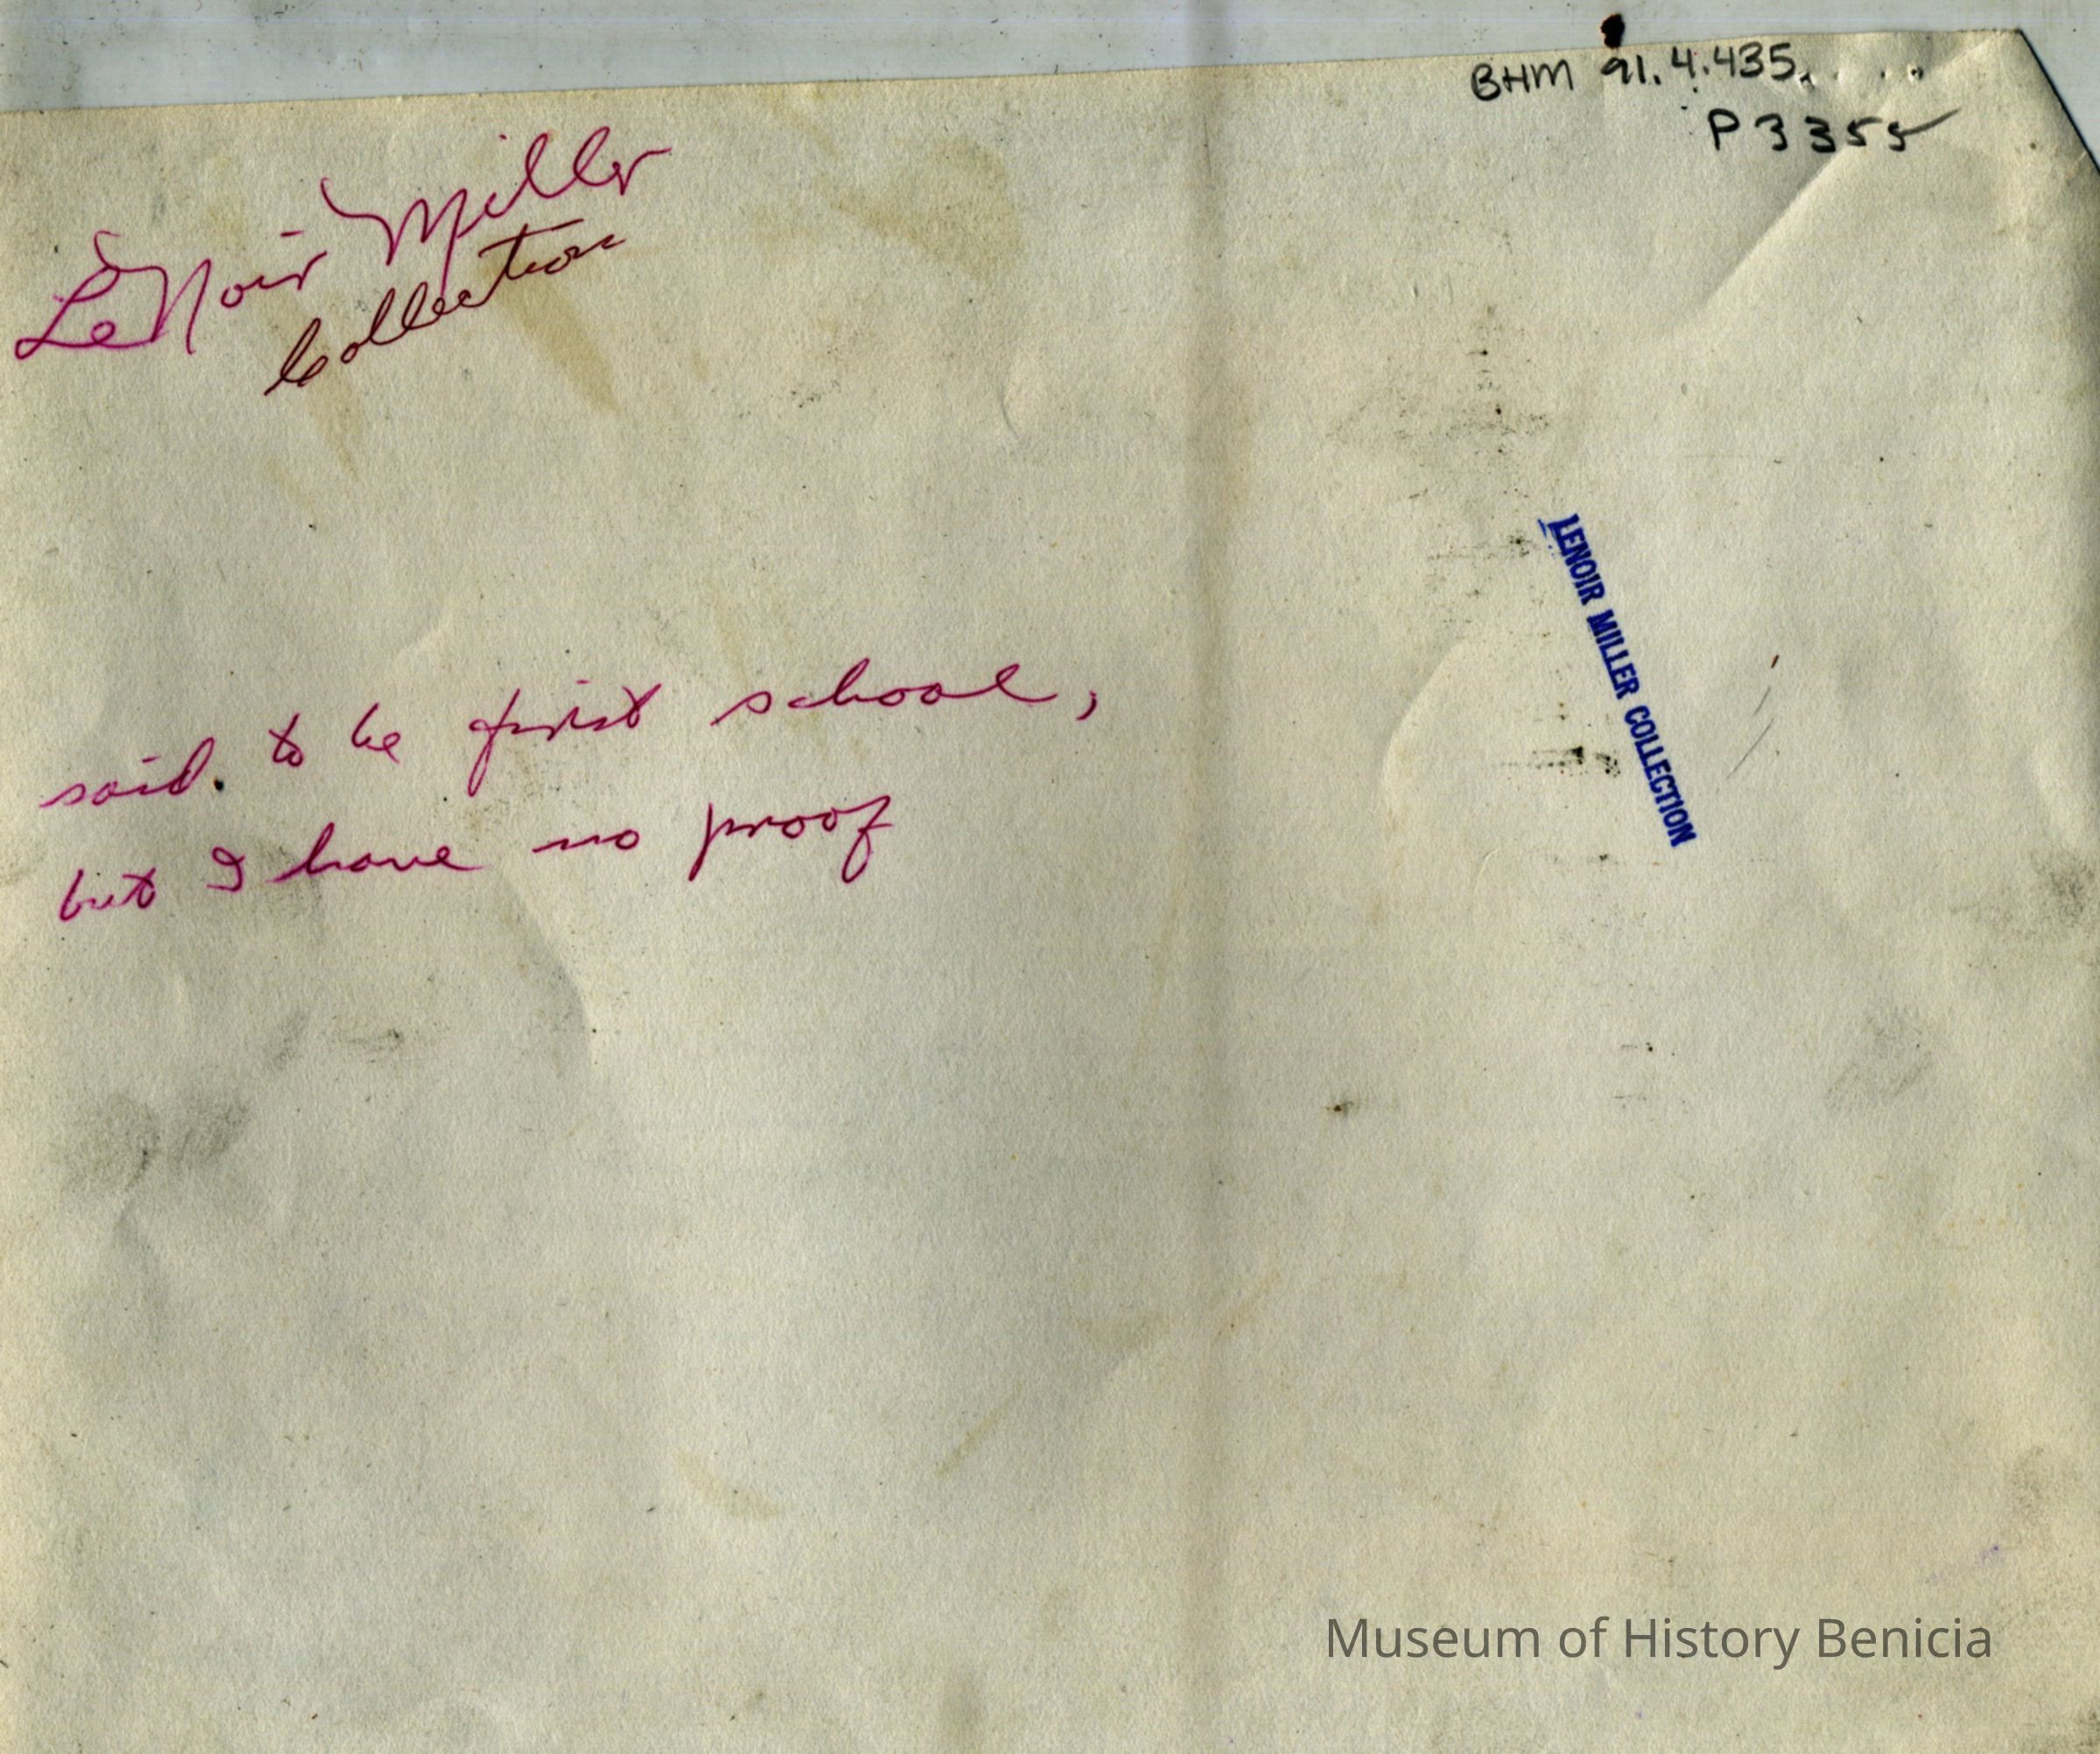 BHM 91.4.435
P3355
LeNoir Miller
Collection
LENOIR MILLER COLLECTION
said. to be first school,
but I have no proof
Museum of History Benicia